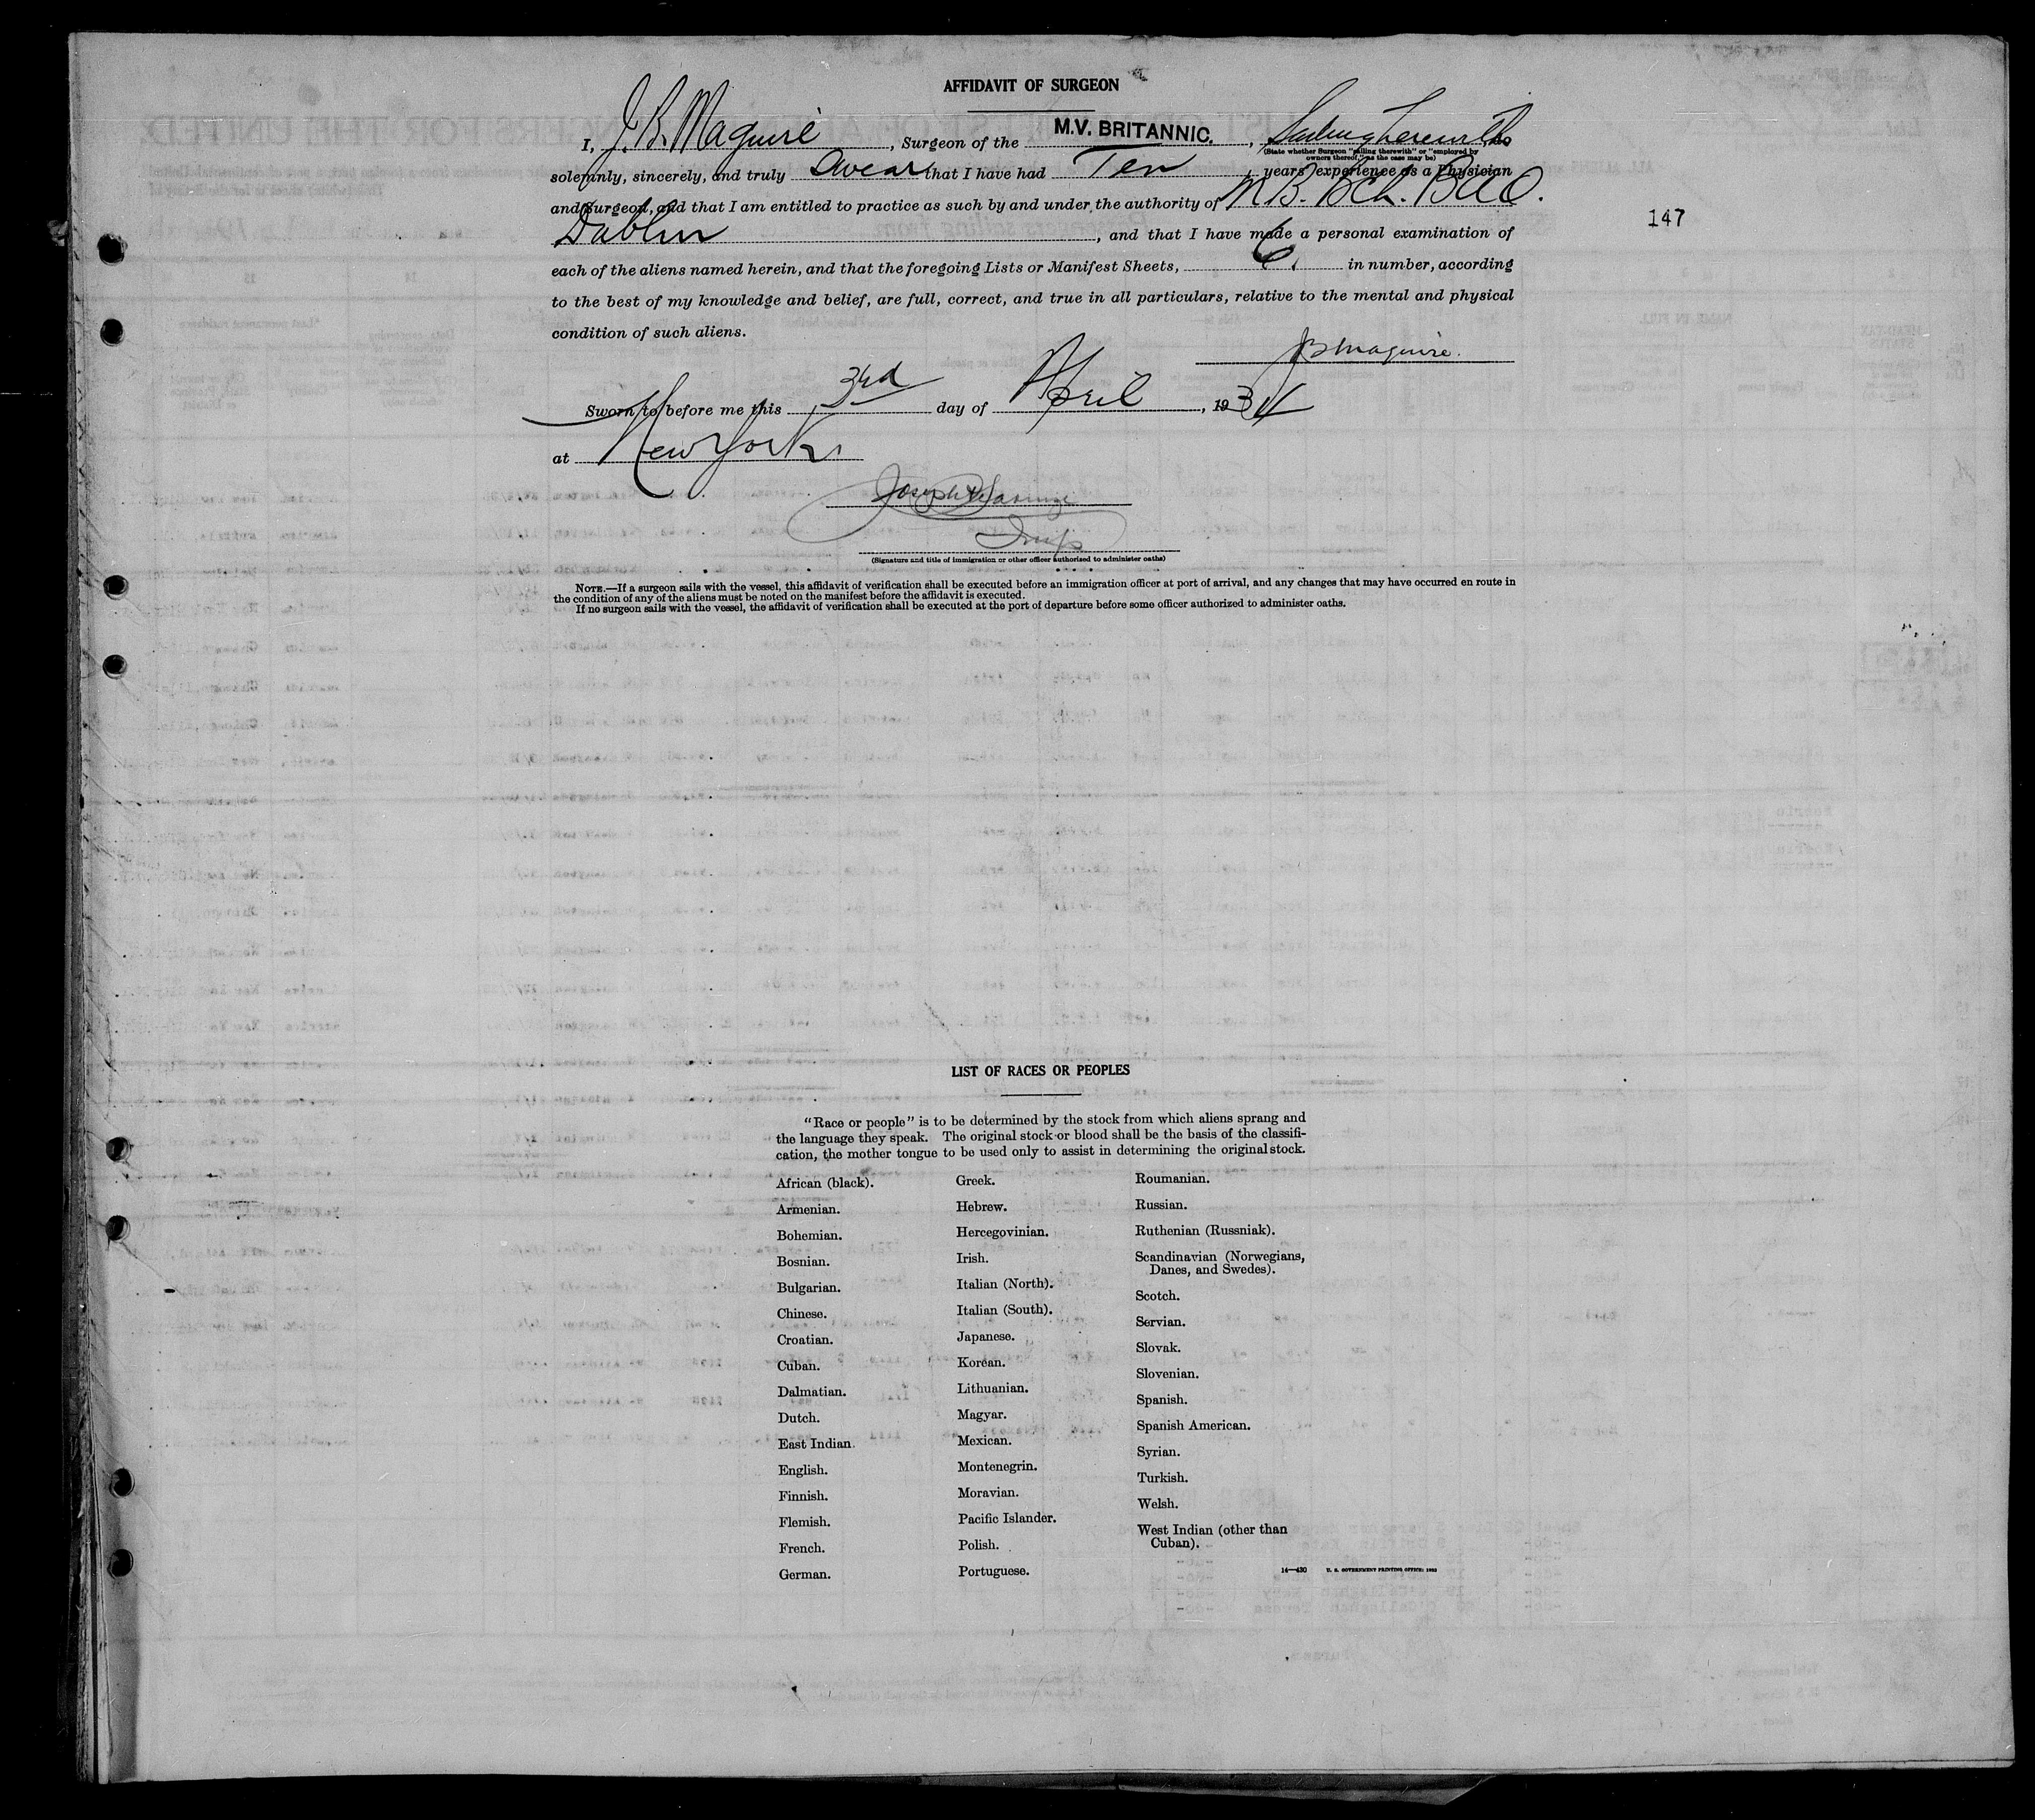 AFFIDAVIT OF SURGEON
I, J. B. Maguire, Surgeon of the M.V. BRITANNIC., Sailing therewith, do
(State whether Surgeon "sailing therewith" or "employed by
owners thereof," as the case may be)
solemnly, sincerely, and truly Swear that I have had Ten years' experience as a Physician
and Surgeon, and that I am entitled to practice as such by and under the authority of M.B. BCh. BAO.
Dublin, and that I have made a personal examination of
each of the aliens named herein, and that the foregoing Lists or Manifest Sheets, 6. in number, according
to the best of my knowledge and belief, are full, correct, and true in all particulars, relative to the mental and physical
condition of such aliens.
147
JB Maguire.
Sworn to before me this 3rd day of April, 1934
at New York
Joseph
Insp
(Signature and title of immigration or other officer authorized to administer oaths)
NOTE.—If a surgeon sails with the vessel, this affidavit of verification shall be executed before an immigration officer at port of arrival, and any changes that may have occurred en route in
the condition of any of the aliens must be noted on the manifest before the affidavit is executed.
If no surgeon sails with the vessel, the affidavit of verification shall be executed at the port of departure before some officer authorized to administer oaths.
LIST OF RACES OR PEOPLES
"Race or people" is to be determined by the stock from which aliens sprang and
the language they speak. The original stock or blood shall be the basis of the classifi-
cation, the mother tongue to be used only to assist in determining the original stock.
African (black).
Armenian.
Bohemian.
Bosnian.
Bulgarian.
Chinese.
Croatian.
Cuban.
Dalmatian.
Dutch.
East Indian.
English.
Finnish.
Flemish.
French.
German.
Greek.
Hebrew.
Hercegovinian.
Irish.
Italian (North).
Italian (South).
Japanese.
Korean.
Lithuanian.
Magyar.
Mexican.
Montenegrin.
Moravian.
Pacific Islander.
Polish.
Portuguese.
Roumanian.
Russian.
Ruthenian (Russniak).
Scandinavian (Norwegians,
Danes, and Swedes).
Scotch.
Servian.
Slovak.
Slovenian.
Spanish.
Spanish American.
Syrian.
Turkish.
Welsh.
West Indian (other than
Cuban).
14—430 U. S. GOVERNMENT PRINTING OFFICE: